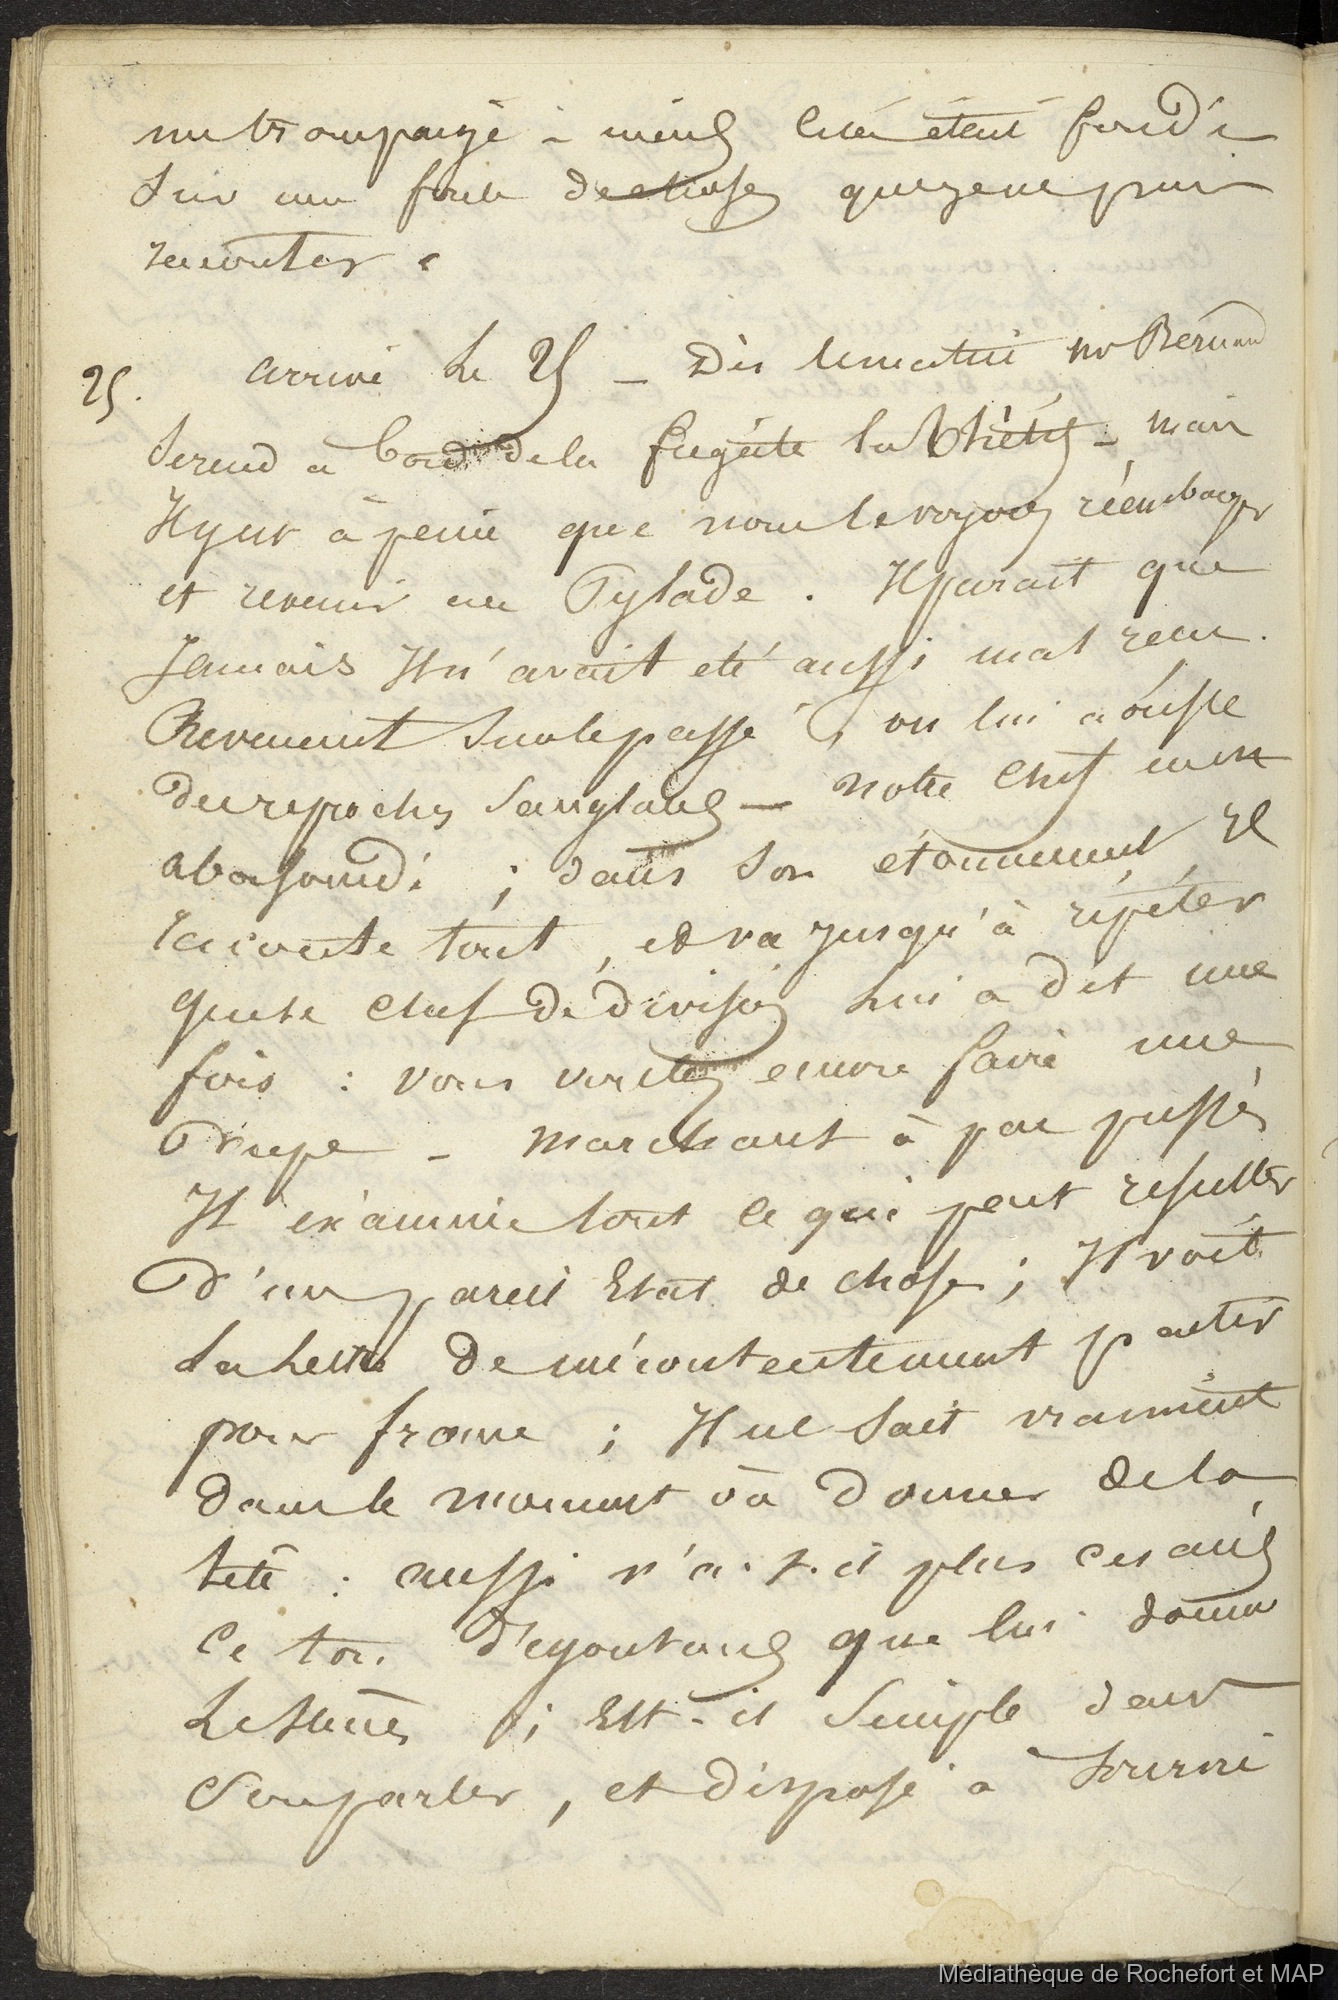 me trompai-je - mieux étant fondé
Sur une foule de choses que je ne puis
raconter.
25. arrivé Le 25 — Dès le matin mr Bernard
Se rend a Bord de la frégate la Thétis - mais
Il y est à peine que nous le voyons réembarquer
et revenir au Pylade. Il parait que
Jamais Il n'avait eté aussi mal recu.
Revenant Sur le passé, on lui a
des reproches Sanglants — Notre Chef en est
abasourdi ; dans Son étonnement, Il
raconte tout, et va jusqu'à répéter
que le Chef de division lui a dit une
fois : vous voulez encore faire une
Dupe — Marchant à pas pressés
Il examine tout ce qui peut resulter
D'un pareil Etat de choses ; Il voit
La Lettre de mécontentement partir
pour france ; Il ne Sait vraiment
dans le moment où Donner de la
tete : aussi n'a-t-il plus ces airs
Ce ton Dégoutant que lui donne
Le Succès ; Est-il Simple dans
Son parler, et Disposé a Sourire
Médiathèque de Rochefort et MAP